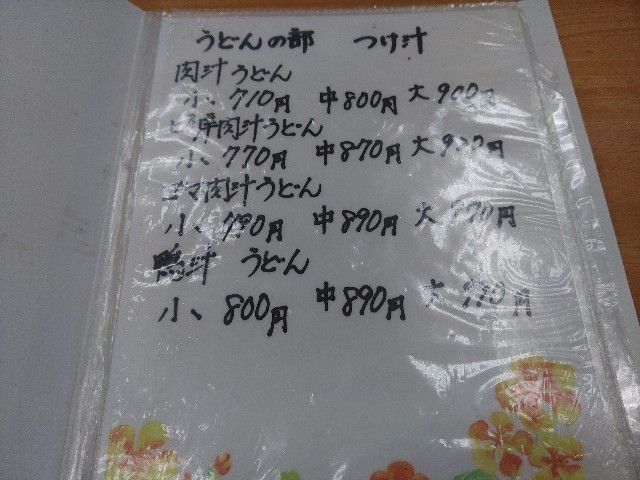 うどんの部 つけ汁
肉汁うどん
小、710円 中800円 大900円
肉汁うどん
小、770円 中870円 大
ゴマ肉汁うどん
小、790円 中890円 大
鴨汁 うどん
小、800円 中890円 大